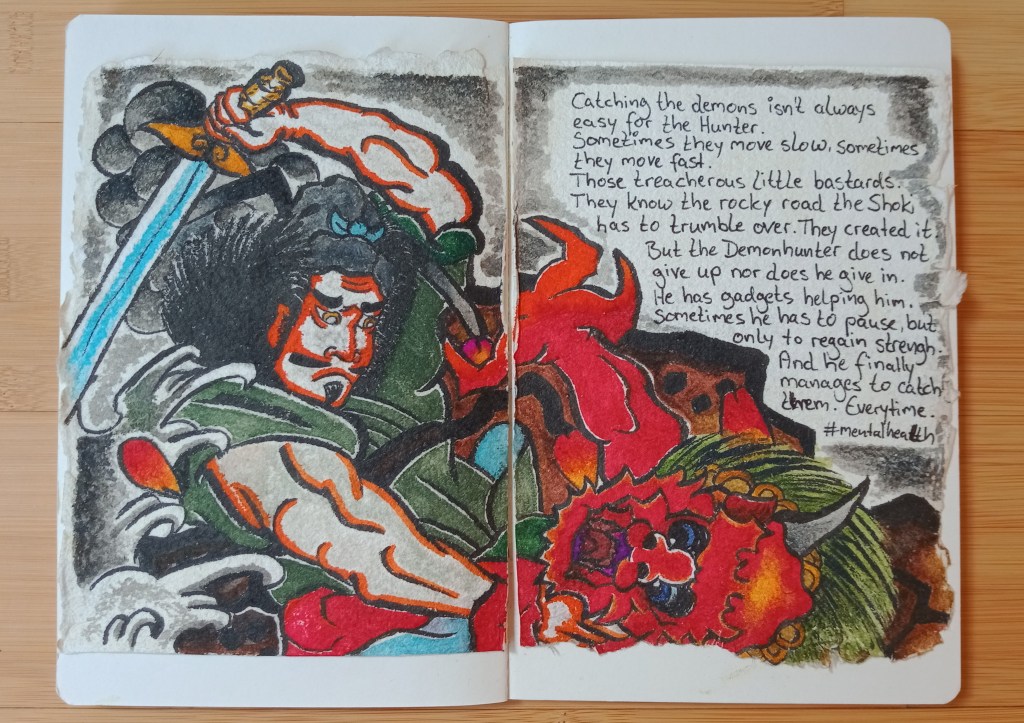 Catching the demons isn't always
easy for the Hunter.
Sometimes they move slow, sometimes
they move fast.
Those treacherous little bastards.
They know the rocky road the Shoki
has to trumble over. They created it.
But the Demonhunter does not
give up nor does he give in.
He has gadgets helping him.
Sometimes he has to pause, but
only to regain strengh.
And he finally
manages to catch
them. Everytime.
#mentalhealth